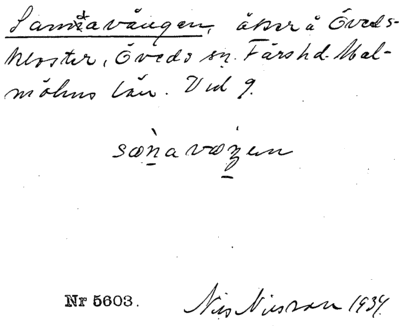 Sannavången, åker å Öveds-
kloster, Öveds sn. Färs hd. Mal-
möhus län. Vid 9.
Nr 5603.
Nils Nilsson 1934.